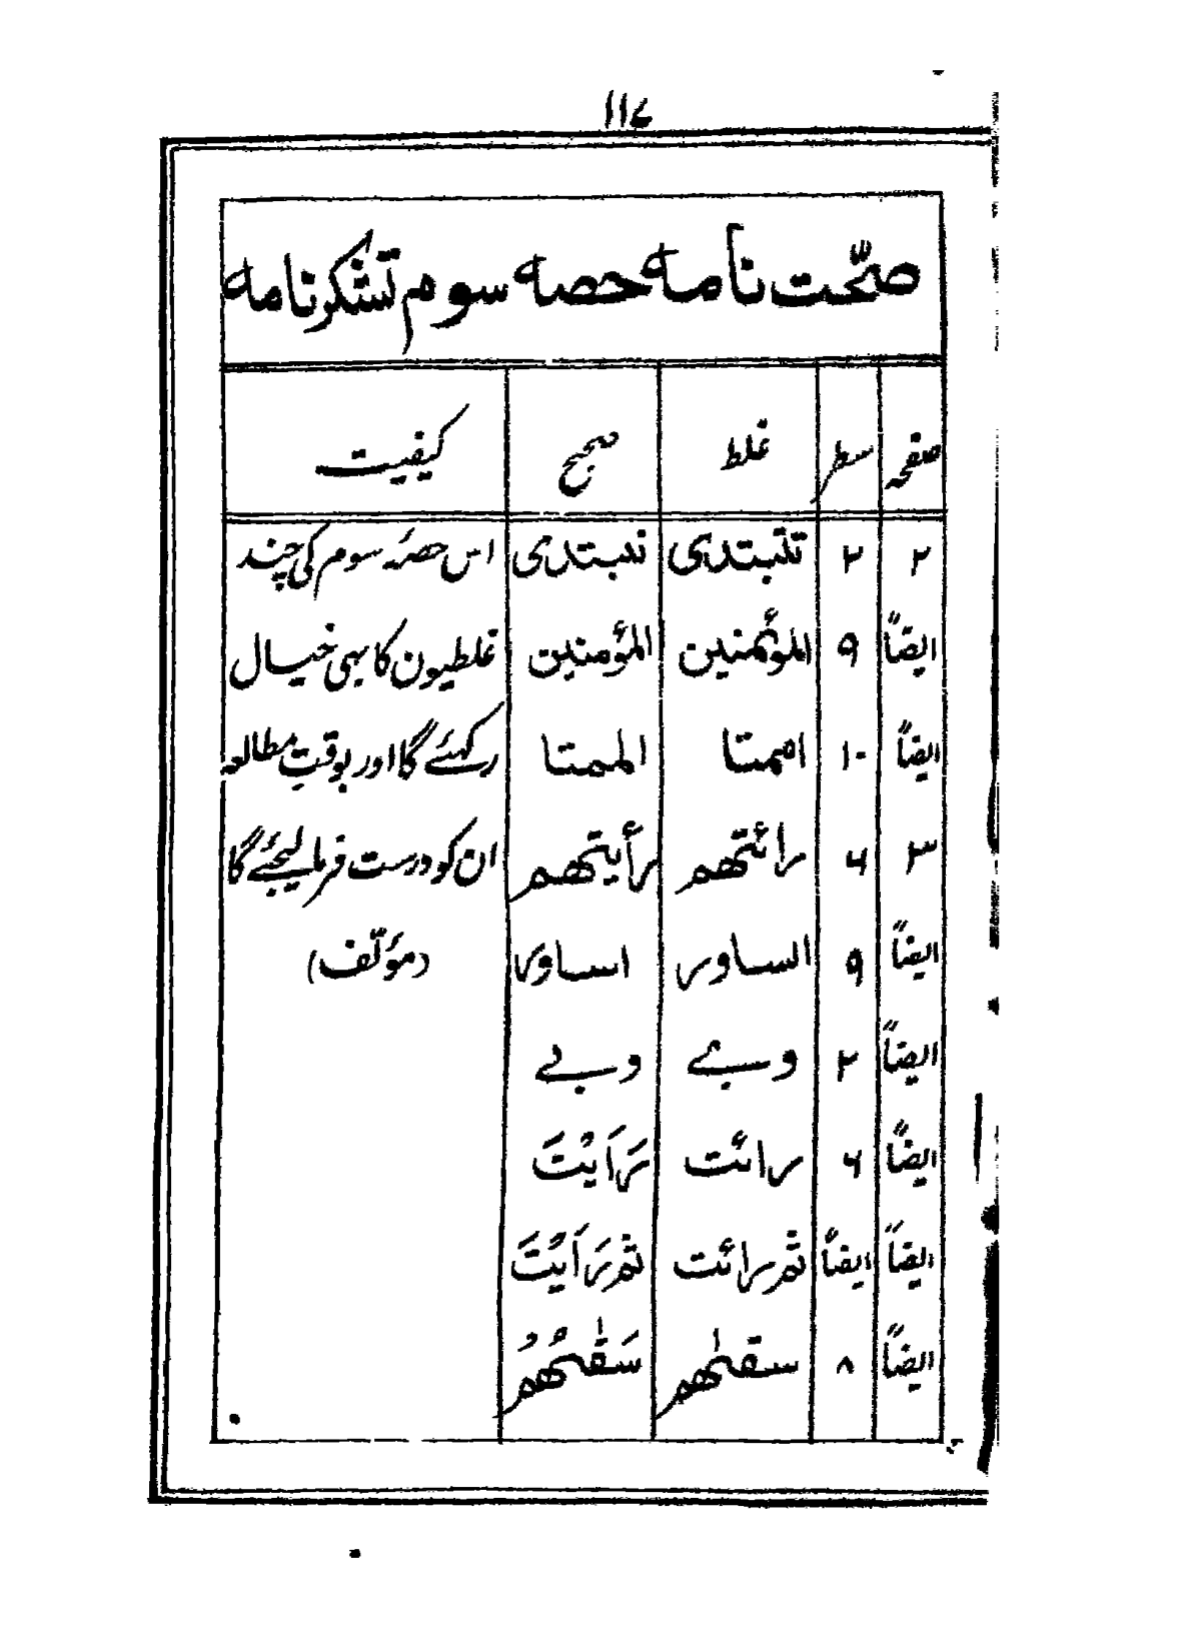 ۱۱۷
صحّت نامہ حصہ سوم تشکرنامہ
صفحہ سطر غلط صحیح کیفیت
۲ ۲ تنبتدی نبتدی اس حصۂ سوم کی چند
ایضاً ۹ الموئمنین المؤمنین غلطیون کا بہی خیال
ایضاً ۱۰ اممتا الممتا رکہئے گا اور بوقتِ مطالعہ
۳ ۶ رائتھم رأیتھم ان کو درست فرمالیجئے گا
ایضاً ۹ الساور اساور (مؤلّف)
ایضاً ۲ وبے وبے
ایضاً ۶ رائت رَاَیْتَ
ایضاً ایضاً ثم رائت ثم رَاَیْتَ
ایضاً ۸ سقٰھم سَقٰىهُمْ